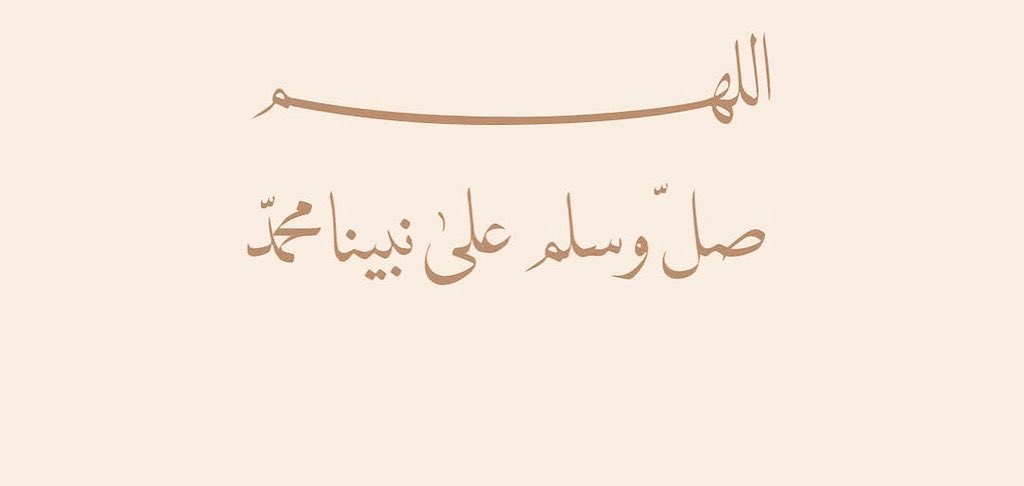 اللهم
صلّ وسلم علىٰ نبينا محمّد